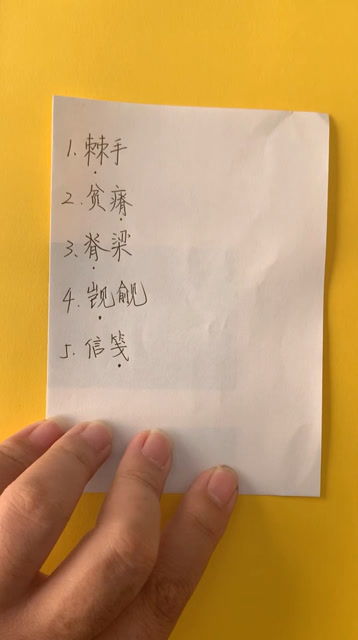 1. 棘手
2. 贫瘠
3. 脊梁
4. 觊觎
5. 信笺